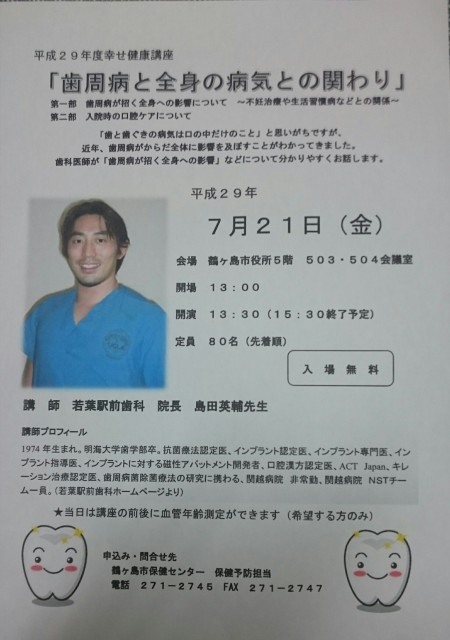 平成２９年度幸せ健康講座
「歯周病と全身の病気との関わり」
第一部　歯周病が招く全身への影響について　～不妊治療や生活習慣病などとの関係～
第二部　入院時の口腔ケアについて
「歯と歯ぐきの病気は口の中だけのこと」と思いがちですが、
近年、歯周病がからだ全体に影響を及ぼすことがわかってきました。
歯科医師が「歯周病が招く全身への影響」などについて分かりやすくお話します。
平成２９年
７月２１日（金）
会場　鶴ヶ島市役所５階　５０３・５０４会議室
開場　１３：００
開演　１３：３０（１５：３０終了予定）
定員　８０名（先着順）
入場無料
講　師　若葉駅前歯科　院長　島田英輔先生
講師プロフィール
1974 年生まれ。明海大学歯学部卒。抗菌療法認定医、インプラント認定医、インプラント専門医、イン
プラント指導医、インプラントに対する磁性アバットメント開発者、口腔漢方認定医、ACT Japan、キレ
ーション治療認定医、歯周病菌除菌療法の研究に携わる、関越病院 非常勤、関越病院 NSTチー
ム一員。（若葉駅前歯科ホームページより）
★当日は講座の前後に血管年齢測定ができます（希望する方のみ）
申込み・問合せ先
鶴ヶ島市保健センター　保健予防担当
電話　２７１－２７４５　FAX　２７１－２７４７